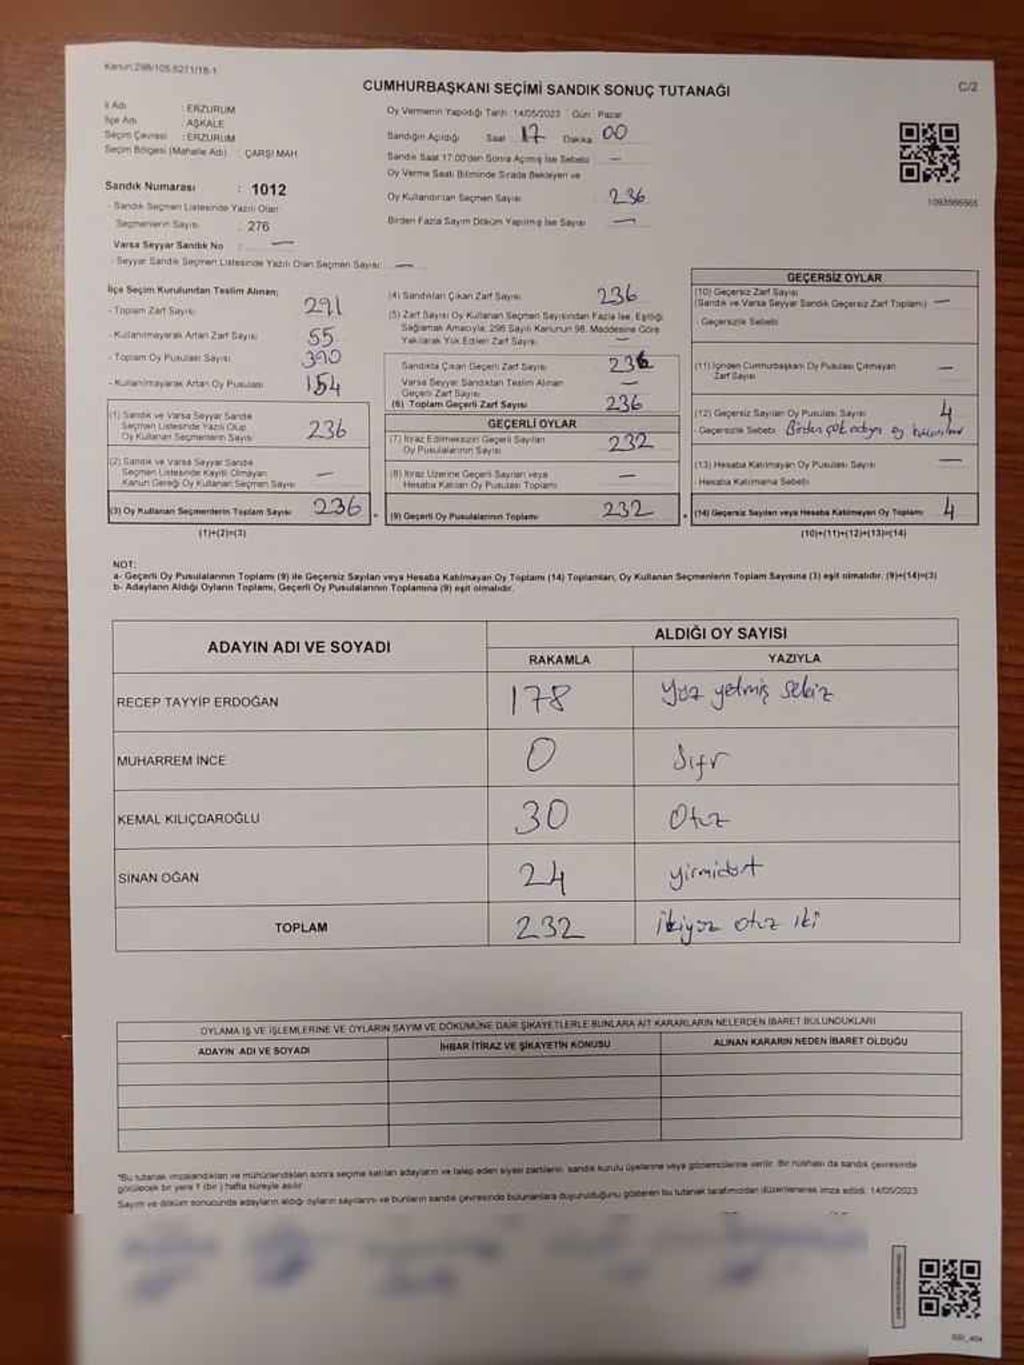 Kanun:298/105,6271/18-1
CUMHURBAŞKANI SEÇİMİ SANDIK SONUÇ TUTANAĞI
C/2
İl Adı : ERZURUM
İlçe Adı : AŞKALE
Seçim Çevresi : ERZURUM
Seçim Bölgesi (Mahalle Adı) : ÇARŞI MAH
Oy Vermenin Yapıldığı Tarih :14/05/2023 Gün: Pazar
Sandığın Açıldığı Saat 17 Dakika 00
Sandık Saat 17:00'den Sonra Açılmış İse Sebebi —
Oy Verme Saati Bitiminde Sırada Bekleyen ve
Oy Kullandırılan Seçmen Sayısı 236
Birden Fazla Sayım Döküm Yapılmış İse Sayısı —
Sandık Numarası : 1012
- Sandık Seçmen Listesinde Yazılı Olan
Seçmenlerin Sayısı : 276
Varsa Seyyar Sandık No : —
- Seyyar Sandık Seçmen Listesinde Yazılı Olan Seçmen Sayısı: —
İlçe Seçim Kurulundan Teslim Alınan;
- Toplam Zarf Sayısı 291
- Kullanılmayarak Artan Zarf Sayısı 55
- Toplam Oy Pusulası Sayısı 390
- Kullanılmayarak Artan Oy Pusulası 154
(1) Sandık ve Varsa Seyyar Sandık
Seçmen Listesinde Yazılı Olup
Oy Kullanan Seçmenlerin Sayısı 236
(2) Sandık ve Varsa Seyyar Sandık
Seçmen Listesinde Kayıtlı Olmayan
Kanun Gereği Oy Kullanan Seçmen Sayısı —
(3) Oy Kullanan Seçmenlerin Toplam Sayısı 236
(1)+(2)=(3)
(4) Sandıktan Çıkan Zarf Sayısı 236
(5) Zarf Sayısı Oy Kullanan Seçmen Sayısından Fazla İse, Eşitliği
Sağlamak Amacıyla, 298 Sayılı Kanunun 98. Maddesine Göre
Yakılarak Yok Edilen Zarf Sayısı —
Sandıkta Çıkan Geçerli Zarf Sayısı 236
Varsa Seyyar Sandıktan Teslim Alınan
Geçerli Zarf Sayısı —
(6) Toplam Geçerli Zarf Sayısı 236
GEÇERLİ OYLAR
(7) İtiraz Edilmeksizin Geçerli Sayılan
Oy Pusulalarının Sayısı 232
(8) İtiraz Üzerine Geçerli Sayılan veya
Hesaba Katılan Oy Pusulası Toplamı —
(9) Geçerli Oy Pusulalarının Toplamı 232
GEÇERSİZ OYLAR
(10) Geçersiz Zarf Sayısı
(Sandık ve Varsa Seyyar Sandık Geçersiz Zarf Toplamı) —
- Geçersizlik Sebebi
(11) İçinden Cumhurbaşkanı Oy Pusulası Çıkmayan
Zarf Sayısı —
(12) Geçersiz Sayılan Oy Pusulası Sayısı 4
- Geçersizlik Sebebi Birden çok adaya oy
(13) Hesaba Katılmayan Oy Pusulası Sayısı —
- Hesaba Katılmama Sebebi
(14) Geçersiz Sayılan veya Hesaba Katılmayan Oy Toplamı 4
(10)+(11)+(12)+(13)=(14)
NOT:
a- Geçerli Oy Pusulalarının Toplamı (9) ile Geçersiz Sayılan veya Hesaba Katılmayan Oy Toplamı (14) Toplamları, Oy Kullanan Seçmenlerin Toplam Sayısına (3) eşit olmalıdır. (9)+(14)=(3)
b- Adayların Aldığı Oyların Toplamı, Geçerli Oy Pusulalarının Toplamına (9) eşit olmalıdır.
ADAYIN ADI VE SOYADI
ALDIĞI OY SAYISI
RAKAMLA YAZIYLA
RECEP TAYYİP ERDOĞAN 178 yüz yetmiş sekiz
MUHARREM İNCE 0 sıfır
KEMAL KILIÇDAROĞLU 30 otuz
SİNAN OĞAN 24 yirmidört
TOPLAM 232 ikiyüz otuz iki
OYLAMA İŞ VE İŞLEMLERİNE VE OYLARIN SAYIM VE DÖKÜMÜNE DAİR ŞİKAYETLERLE BUNLARA AİT KARARLARIN NELERDEN İBARET BULUNDUKLARI
ADAYIN ADI VE SOYADI İHBAR İTİRAZ VE ŞİKAYETİN KONUSU ALINAN KARARIN NEDEN İBARET OLDUĞU
*Bu tutanak imzalandıktan ve mühürlendikten sonra seçime katılan adayların ve talep eden siyasi partilerin, sandık kurulu üyelerine veya gözlemcilerine verilir. Bir nüshası da sandık çevresinde
görülecek bir yere 1 (bir ) hafta süreyle asılır.
Sayım ve döküm sonucunda adayların aldığı oyların sayılarını ve bunların sandık çevresinde bulunanlara duyurulduğunu gösteren bu tutanak tarafımızdan düzenlenerek imza edildi. 14/05/2023